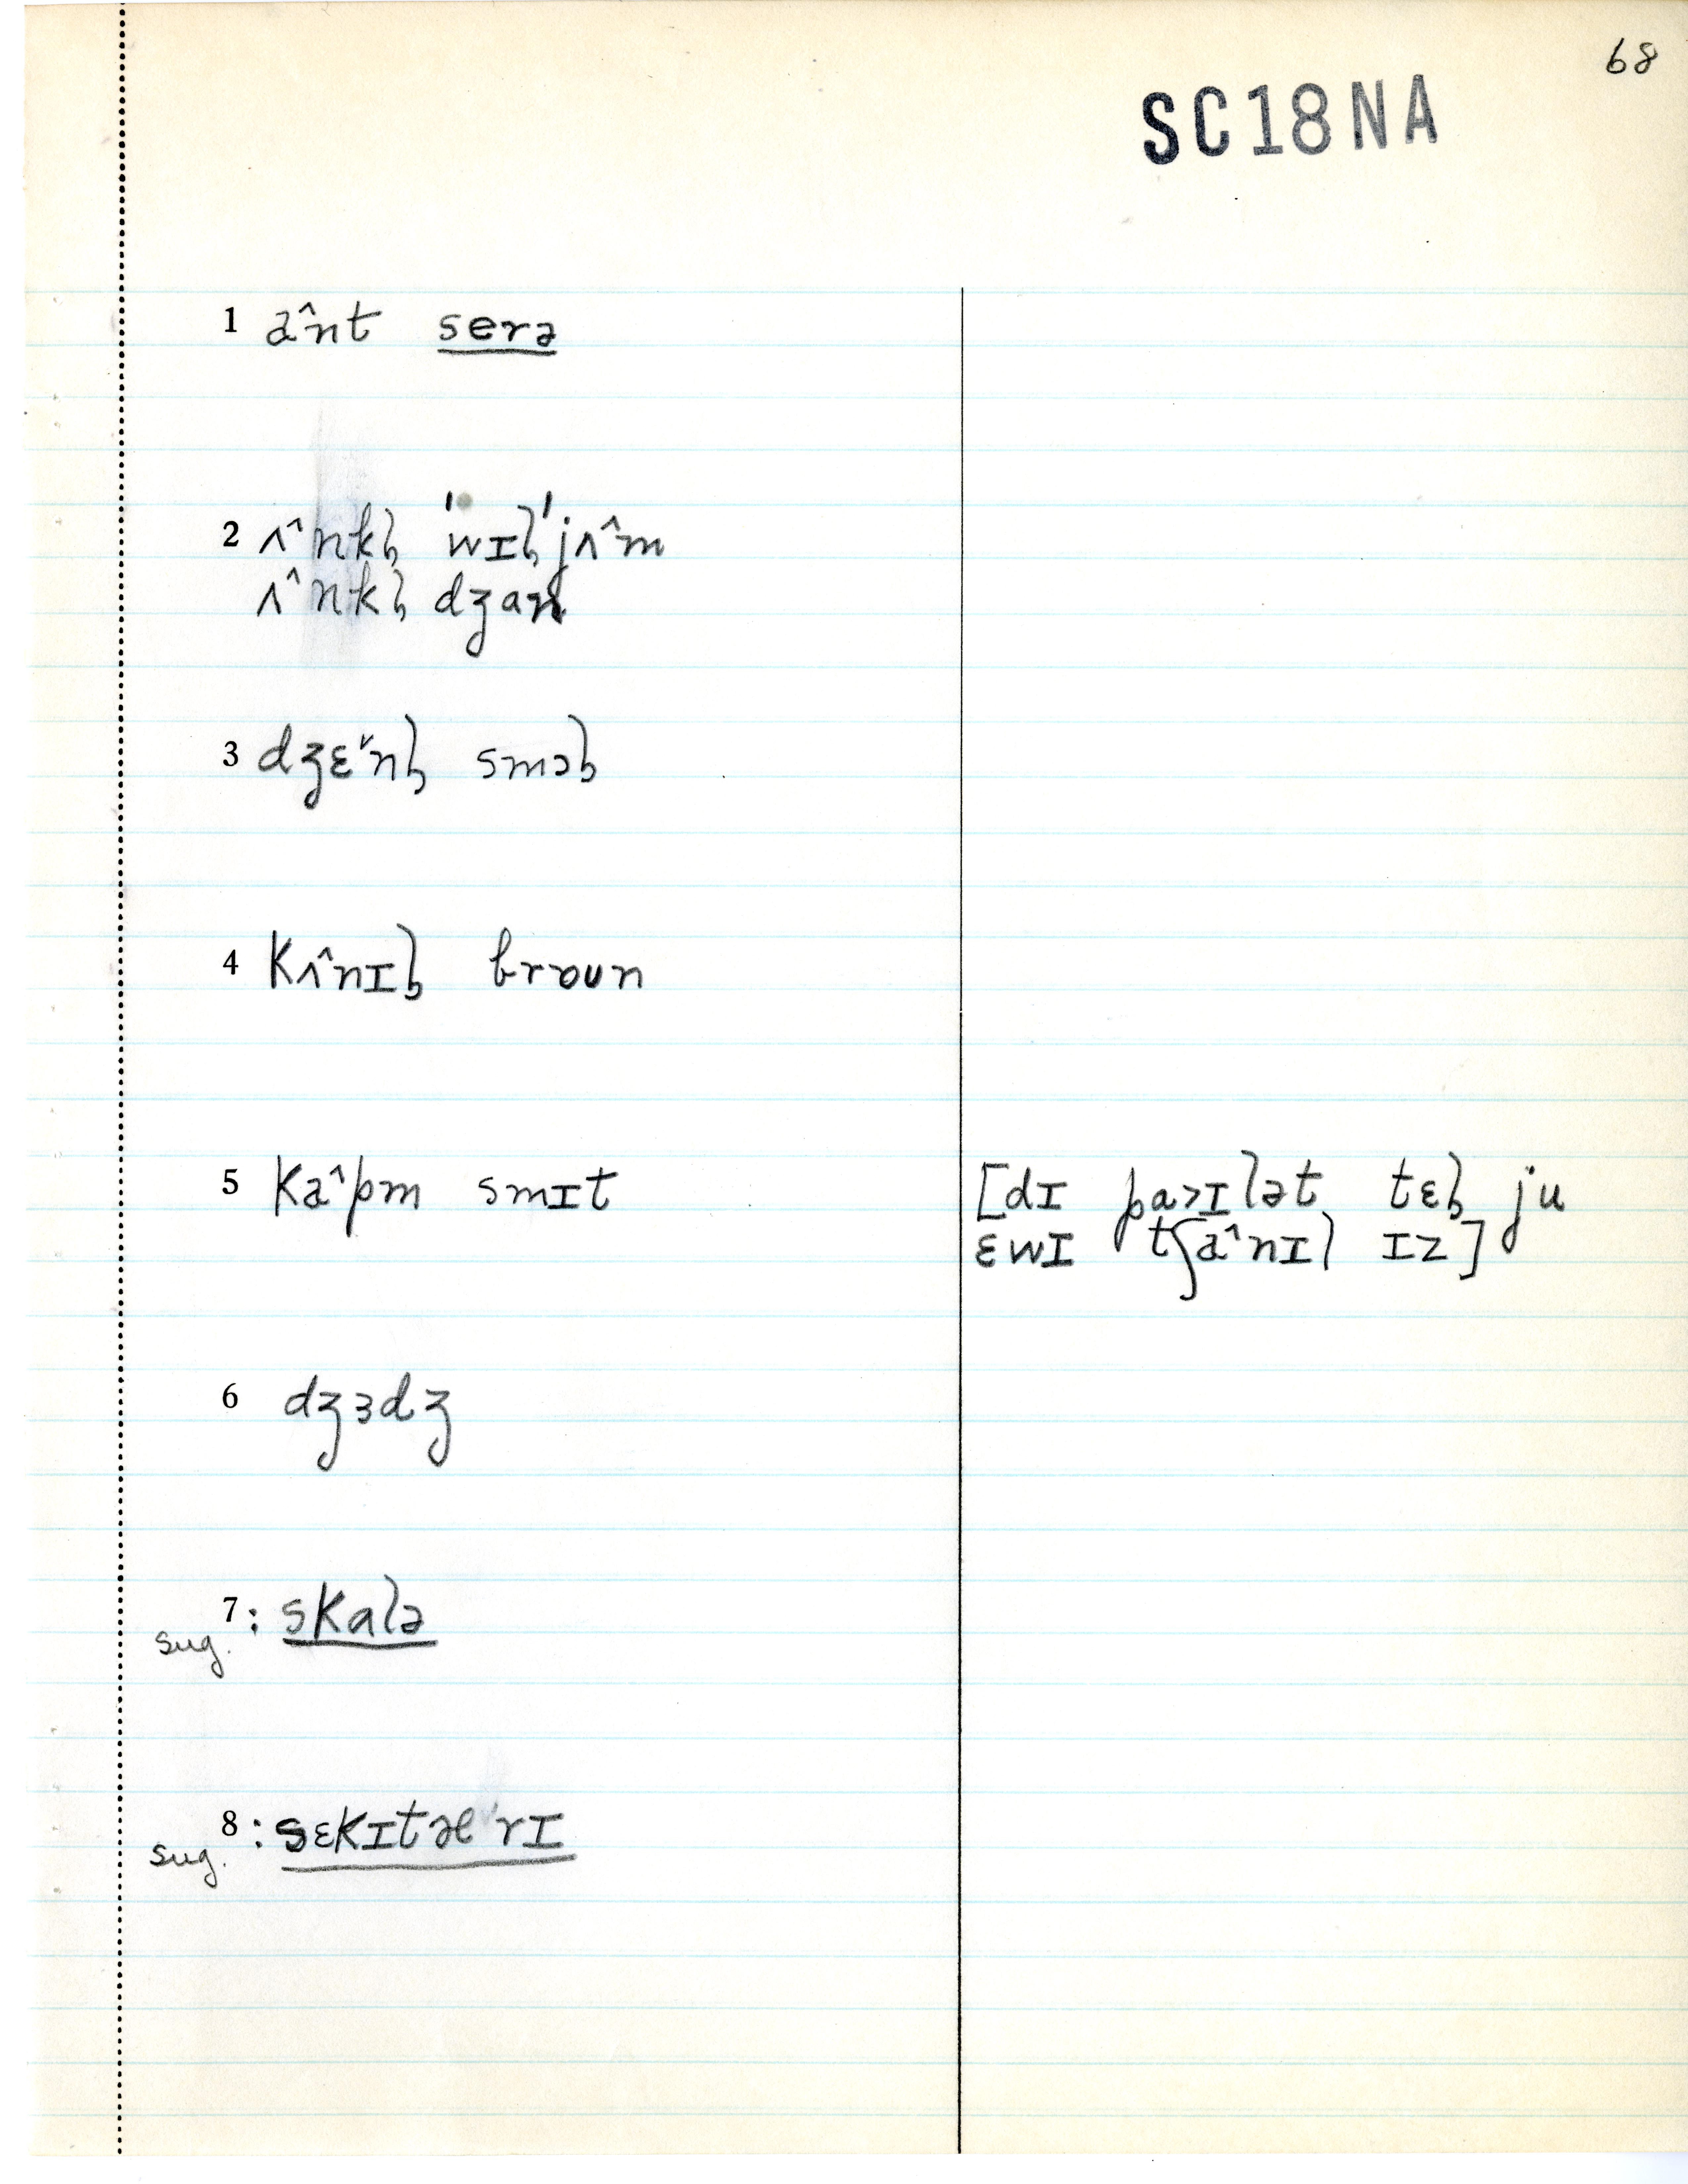 68
SC18NA
1 a^nt serə
2 ʌ^nkl̡ 'wɪl̡'jʌ^m
ʌ^nkl̡ dʒan
3 dʒɛˇnl̡ smɔl̡
4 kʌ^nɪl̡ broun
5 ka^pm smɪt
[dɪ pa>ɪlət tɛl̡ ju
ɛwɪ tʃa^nɪl ɪz]
6 dʒɜdʒ
7 : skalə
sug.
8 : sɛkɪtæˇrɪ
sug.